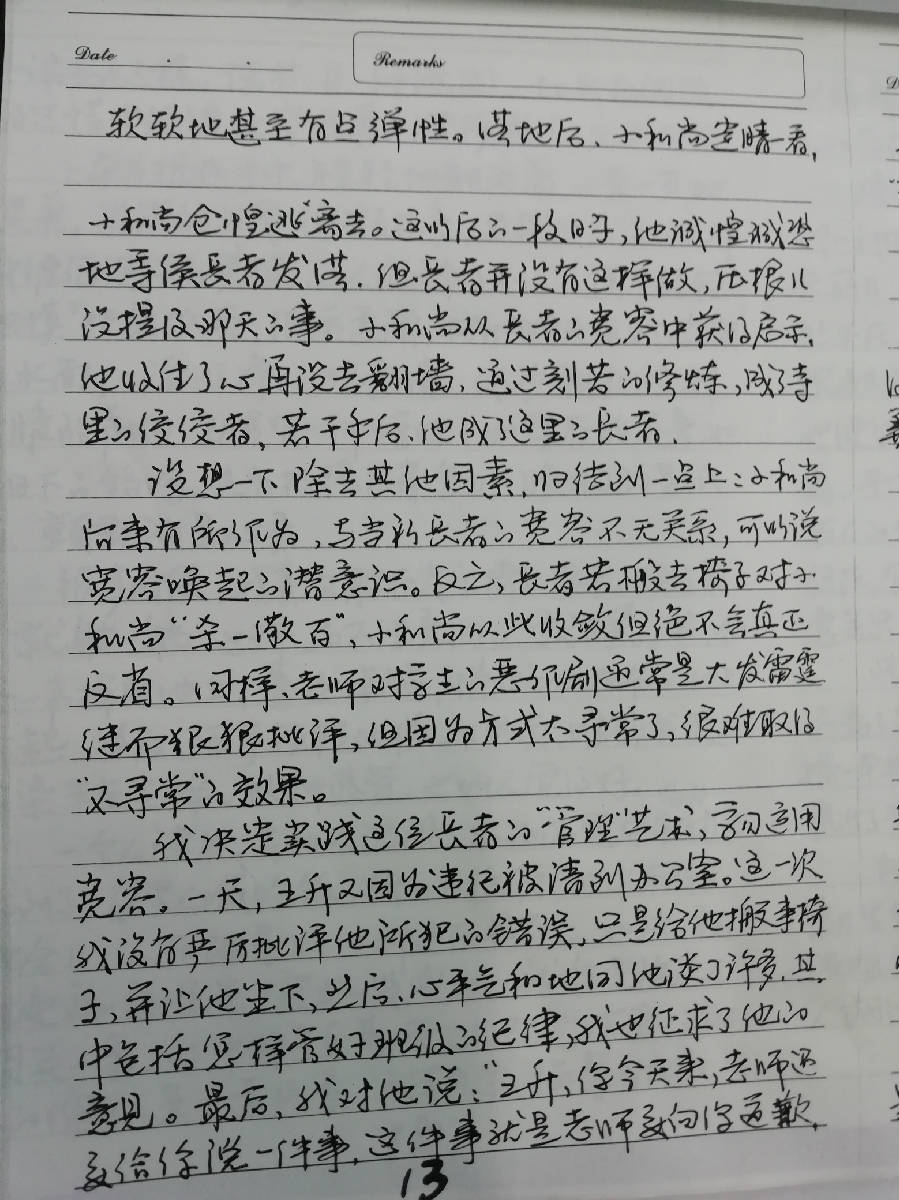 Date
Remarks
软软地甚至有点弹性。落地后、小和尚定睛一看,
小和尚仓惶逃离去。这以后的一段日子,他诚惶诚恐
地等侯長者发落.但長者并没有这样做,压根儿
没提及那天的事。小和尚从長者的宽容中获得启示,
他收住了心再没去翻墙,通过刻苦的修炼,成了寺
里的佼佼者,若干年后、他成了这里的長者.
设想一下除去其他因素,归结到一点上:小和尚
后来有所作为,与当初長者的宽容不无关系,可以说
宽容唤起的潜意识。反之,長者若搬去椅子对小
和尚“杀一儆百”,小和尚从此收敛但绝不会真正
反省。同样、老师对学生的恶作剧通常是大发雷霆
继而狠狠批评,但因为方式太寻常了,很难取得
“不寻常”的效果。
我决定实践这位長者的“管理”艺术,学习运用
宽容。一天,王升又因为违纪被请到办公室。这一次
我没有严厉批评他所犯的错误,只是给他搬来椅
子,并让他坐下,然后、心平气和地同他谈了许多.其
中包括怎样管好班级的纪律,我也征求了他的
意见。最后,我对他说:“王升,你今天来,老师还
要给你说一件事,这件事就是老师要向你道歉,
13